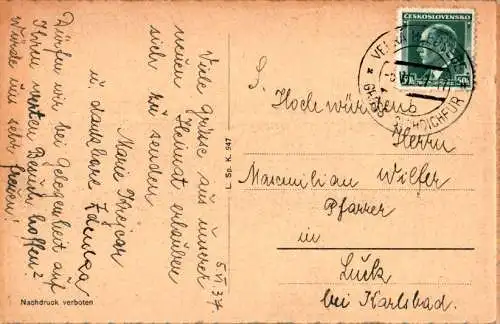 Viele Grüsse aus unserer
neuen Heimat erlauben
sich zu senden
Marie Krejcar
u. dankbare Zdenka
Dürfen wir bei Gelegenheit auf
Ihren werten Besuch hoffen?
Würde uns sehr
freuen!
5 VI 37
L. Sp. K. 547
Nachdruck verboten
ČESKOSLOVENSKO
50h
S. Hochwürdens
Herrn
Maxmilian Wilfer
Pfarrer
in
Luck
bei Karlsbad.